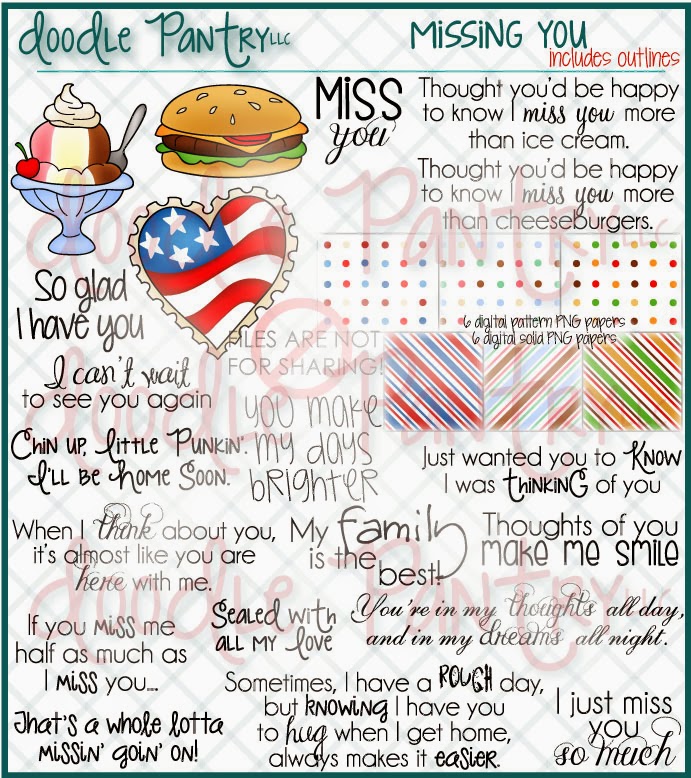 doodle Pantry LLC
Missing You
includes outlines
Miss
you
Thought you'd be happy
to know I miss you more
than ice cream.
Thought you'd be happy
to know I miss you more
than cheeseburgers.
So glad
I have you
6 digital pattern PNG papers
6 digital solid PNG papers
FILES ARE NOT
FOR SHARING!
I can't wait
to see you again
you make
my days
brighter
Chin up, little Punkin'.
I'll be home soon.
Just wanted you to Know
I was thinking of you
When I think about you,
it's almost like you are
here with me.
My family
is the
best!
Thoughts of you
make me smile
If you miss me
half as much as
I miss you...
Sealed with
all my love
You're in my thoughts all day,
and in my dreams all night.
That's a whole lotta
missin' goin' on!
Sometimes, I have a ROUGH day,
but knowing I have you
to hug when I get home,
always makes it easier.
I just miss
you
so much
doodle Pantry LLC
doodle Pantry
doodle Pantry LLC